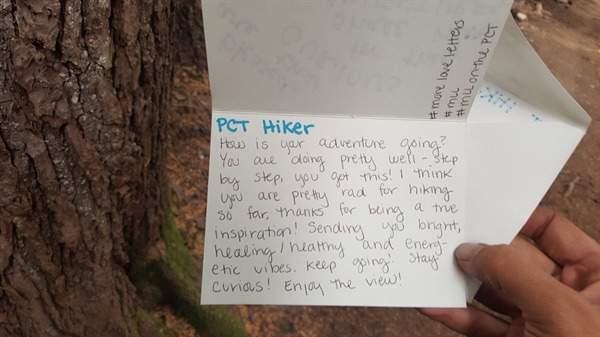 PCT Hiker
How is your adventure going?
You are doing pretty well - step
by step, you got this! I think
you are pretty rad for hiking
so far, thanks for being a true
inspiration! Sending you bright,
healing/healthy and energ-
etic vibes. Keep going! Stay
curious! Enjoy the view!
#more love letters
#mll
#mll on the PCT